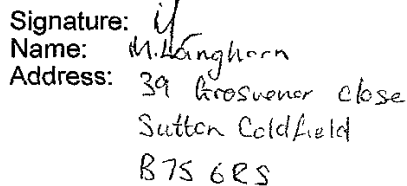 Signature:
Name: M. Langhorn
Address: 39 Grosvenor close
Sutton Coldfield
B75 6RS